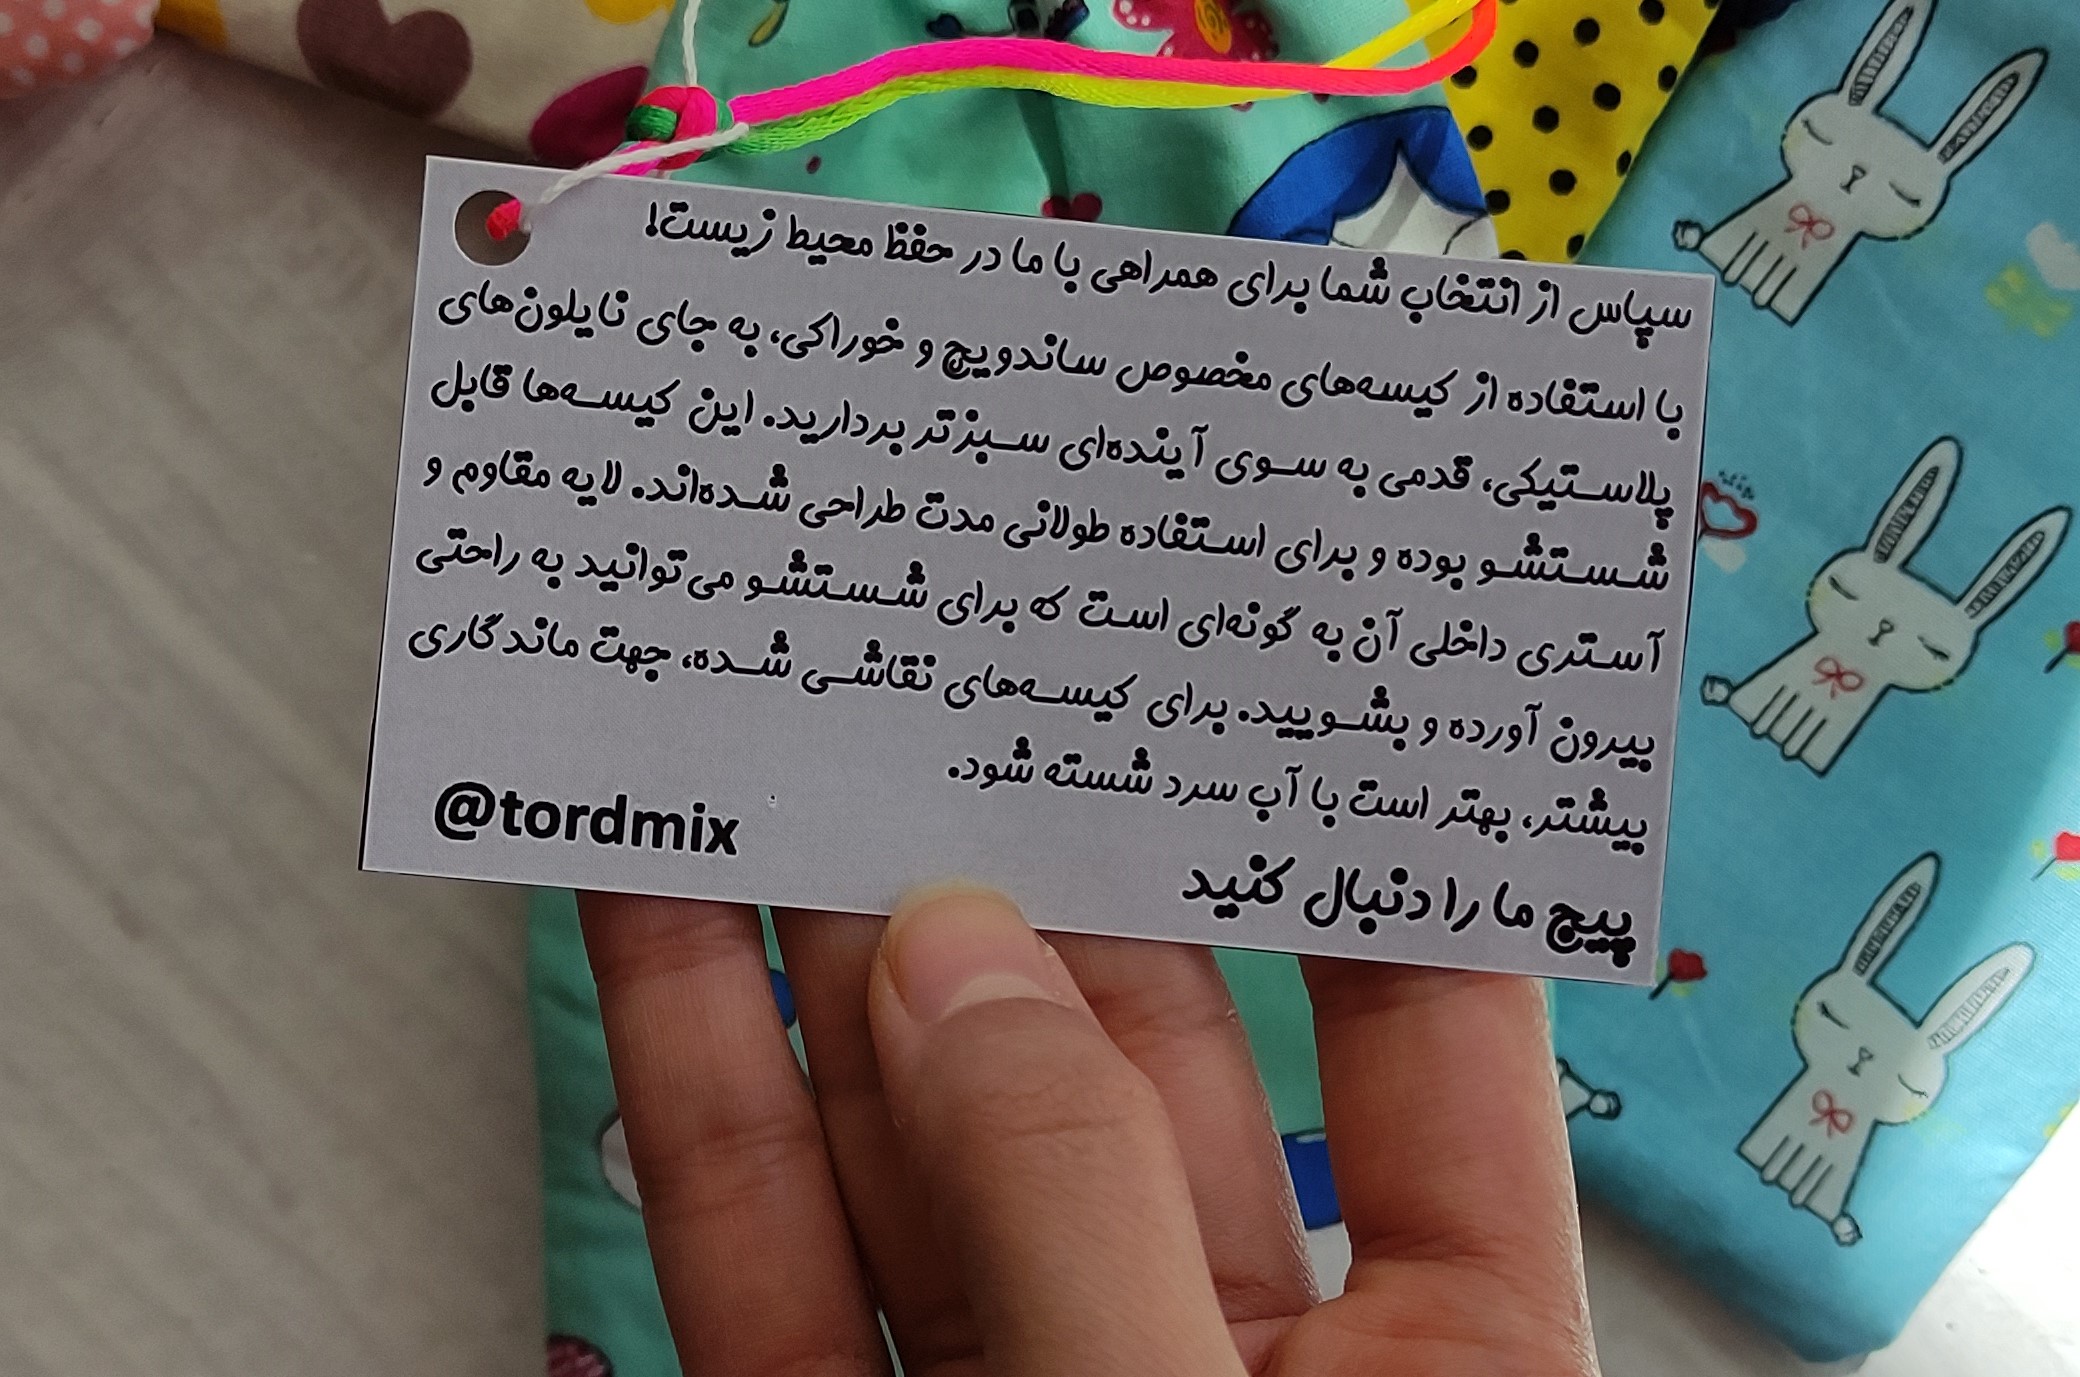 سپاس از انتخاب شما برای همراهی با ما در حفظ محیط زیست!
با استفاده از کیسه‌های مخصوص ساندویچ و خوراکی، به جای نایلون‌های
پلاستیکی، قدمی به سوی آینده‌ای سبزتر بردارید. این کیسه‌ها قابل
شستشو بوده و برای استفاده طولانی مدت طراحی شده‌اند. لایه مقاوم و
آستری داخلی آن به گونه‌ای است که برای شستشو می‌توانید به راحتی
بیرون آورده و بشویید. برای کیسه‌های نقاشی شده، جهت ماندگاری
بیشتر، بهتر است با آب سرد شسته شود.
پیج ما را دنبال کنید
@tordmix